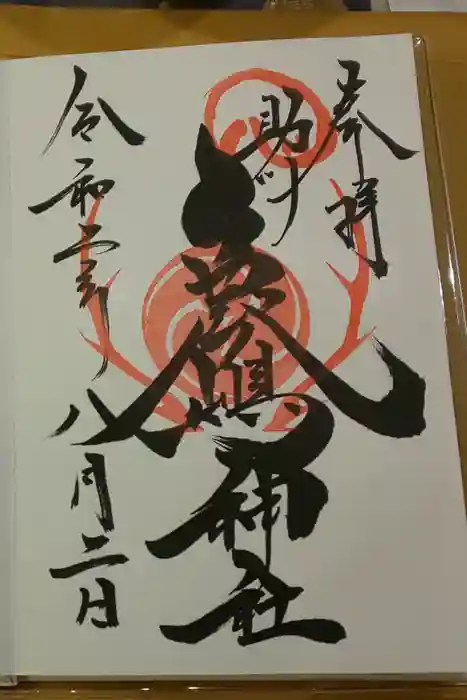 奉拝
助川
神社
令和二年
八月二日